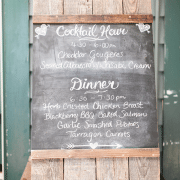 Cocktail Hour
5:30 - 6:30pm
Cheddar Gougères
Dinner
6:30 - 7:30 pm
Herb Crusted Chicken Breast
Blackberry BBQ Baked Salmon
Garlic Smashed Potatoes
Tarragon Carrots